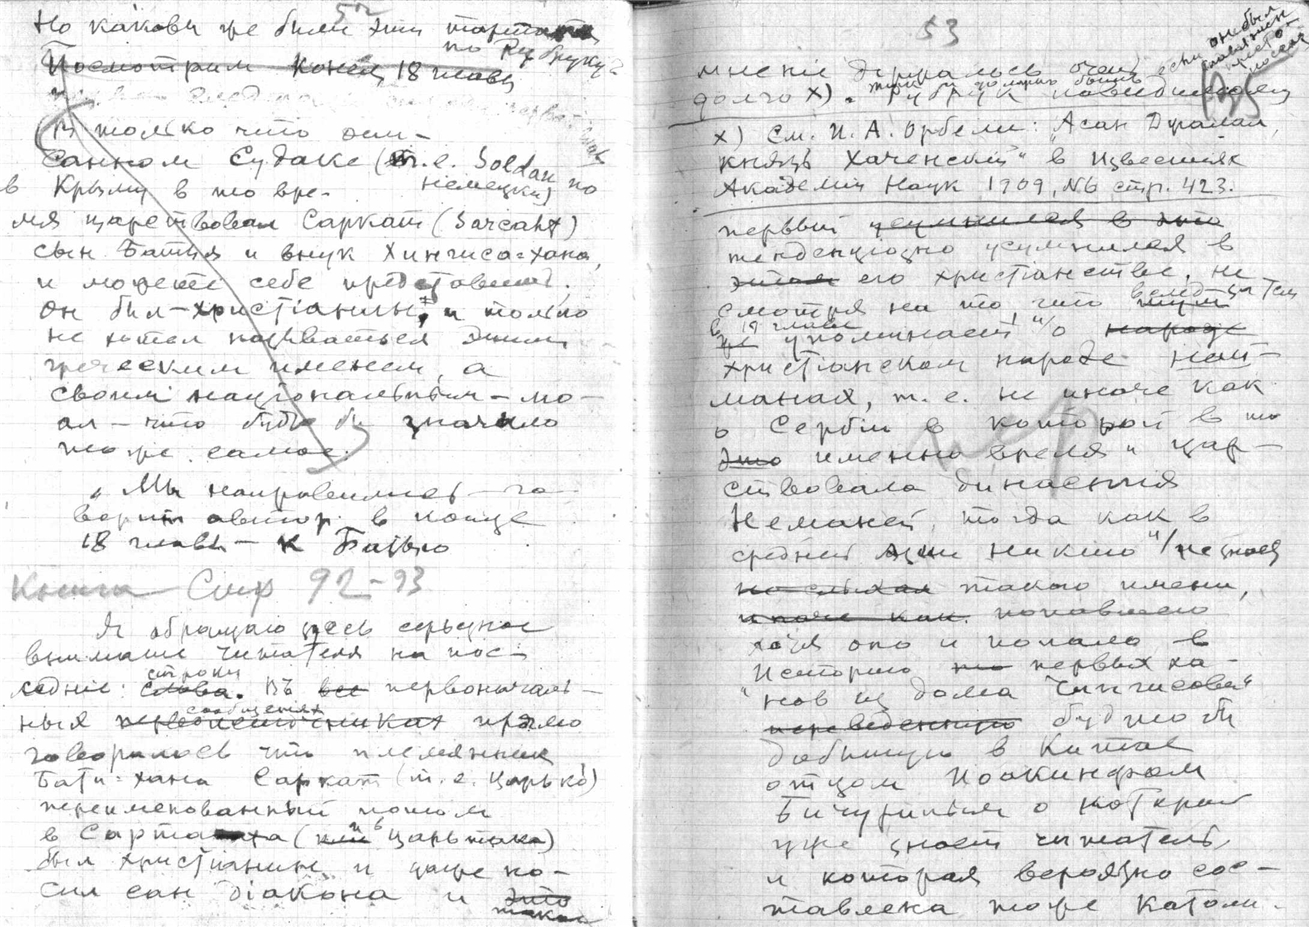 52
Но каковы же были эти
по Рубруку?
Посмотрим конец 18 главы
В только что опи-
санном Судаке (т.е. Soldan по
немецки)
в Крыму в то вре-
мя царствовал Саркат (Sarcaht)
сын Батыя и внук Хингиса-хана,
и можете себе представить,
он был - христіанин, и только
не хотел называться этим
греческим именем, а
своим національным - мо-
ал - что будто бы значило
тоже самое.
„Мы направились - го-
ворит автор в конце
18 главы - к Батыю
Книга Стр 92-93
Я обращаю здесь серьезное
вниманіе читателя на пос-
строки
ледніе: слова. Въ все первоначаль-
сообщениях
ных первоисточниках прямо
говорилось что племянник
Баты-хана Саркат (т.е. Царько)
переименованный потом
в Сарта ха (или в Царьтака)
был христіанин и даже но-
сил сан діакона и это
такое
53
если он был
135
мненіе держалось очень
долго x). Рубрук
x) См. И. А. Орбели: „Асан Джалал,
князь Хаченскій“ в Известіях
Академіи Наук 1909, №6 стр. 423.
первый усумнился в это
тенденціозно усумнился в
этом его христіанстве, не
смотря на то, что вслед за тем
в 19 главе
же упоминает и о народе
христіанском народе най-
манах, т. е. не иначе как
о Сербіи в которой в то
это именно время и цар-
ствовала династия
Неманей, тогда как в
средней Азии никто и не знает
не слыхал такого имени,
иначе как. попавшего
хотя оно и попало в
Исторію первых ха-
„нов из дома Чингисова“
переведенную будто бы
добытую в Китае
отцом Иоакинфом
Бичуриным о которой
уже знает читатель,
и которая вероятно сос-
тавлена тоже Католи-